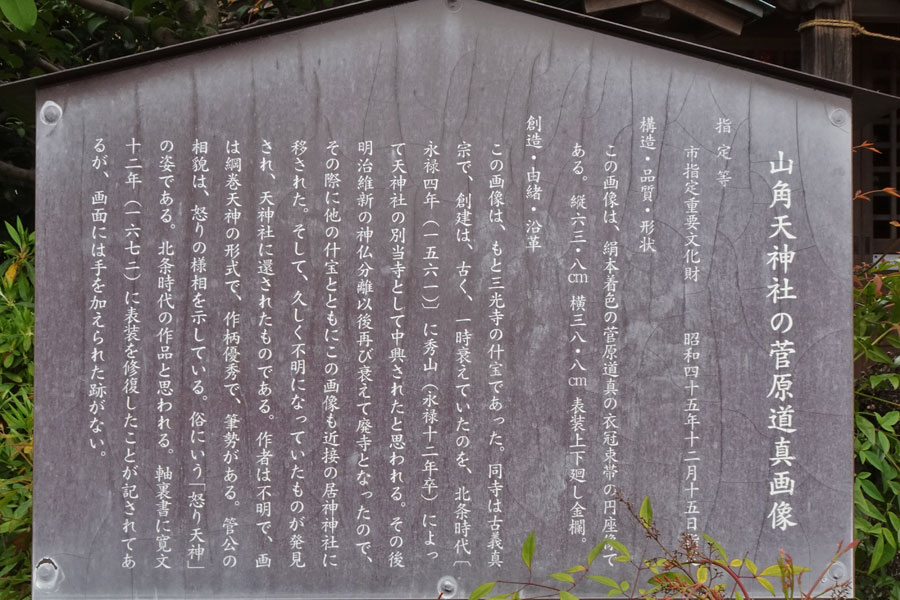 山角天神社の菅原道真画像
指定等
市指定重要文化財 昭和四十五年十二月十五日
構造・品質・形状
この画像は、絹本着色の菅原道真の衣冠束帯の円座像で
ある。縦六三・八㎝ 横三八・八㎝ 表装上下廻し金襴。
創造・由緒・沿革
この画像は、もと三光寺の什宝であった。同寺は古義真
宗で、創建は、古く、一時衰えていたのを、北条時代〔
永禄四年（一五六一）に秀山（永禄十二年卒）によっ
て天神社の別当寺として中興されたと思われる。その後
明治維新の神仏分離以後再び衰えて廃寺となったので、
その際に他の什宝とともにこの画像も近接の居神神社に
移された。そして、久しく不明になっていたものが発見
され、天神社に還されたものである。作者は不明で、画
は綱巻天神の形式で、作柄優秀で、筆勢がある。菅公の
相貌は、怒りの様相を示している。俗にいう「怒り天神」
の姿である。北条時代の作品と思われる。軸裏書に寛文
十二年（一六七二）に表装を修復したことが記されてあ
るが、画面には手を加えられた跡がない。